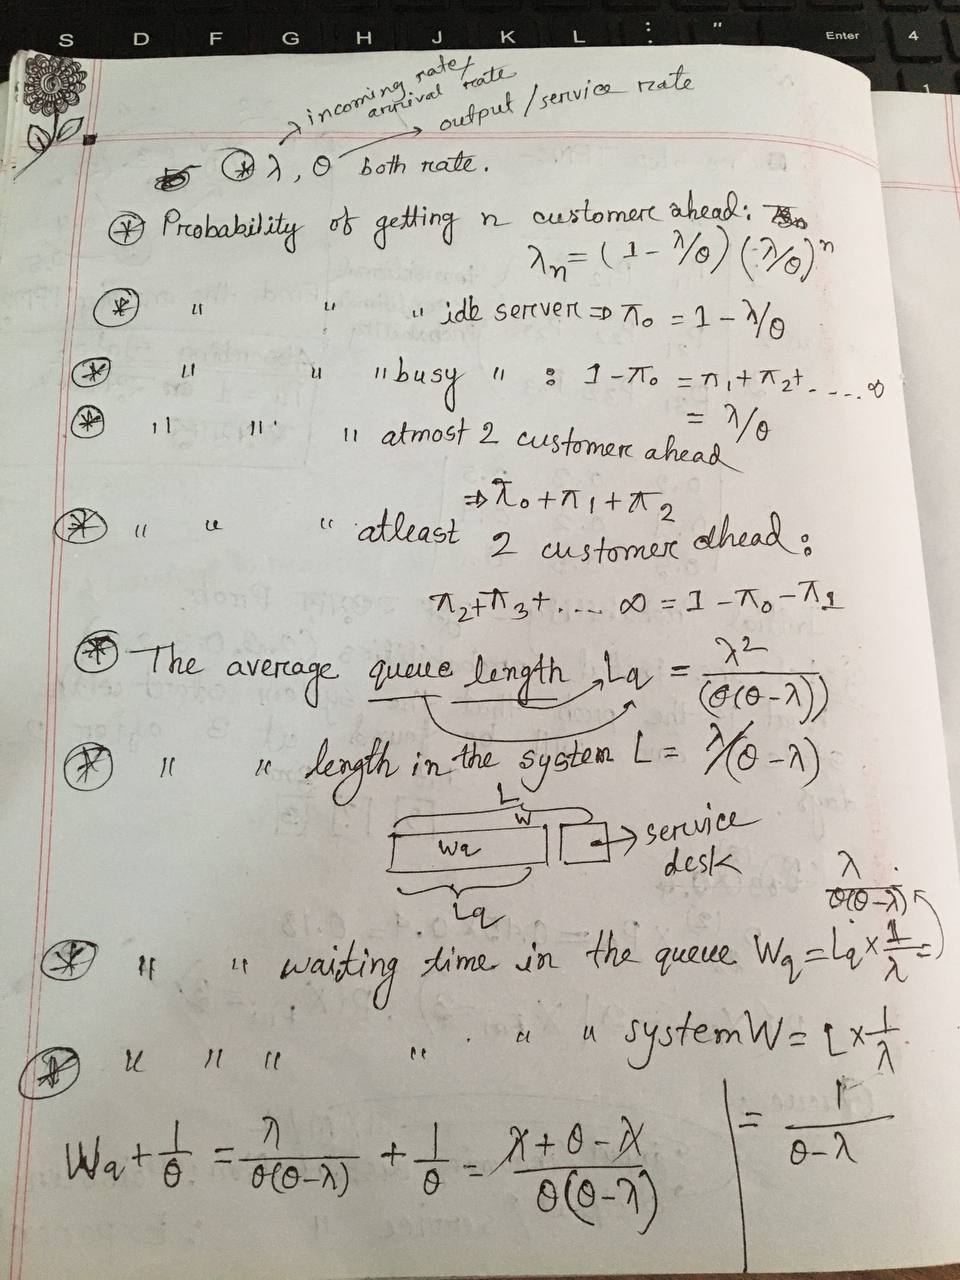 S D F G H J K L : " Enter 4
incoming rate/
arrival rate
output / service rate
⊛ λ, θ both rate.
⊛ Probability of getting n customer ahead:
λn = (1 - λ/θ) (λ/θ)^n
⊛ " " " idle server ⇒ π₀ = 1 - λ/θ
⊛ " " " busy " : 1 - π₀ = π₁ + π₂ + ..... ∞
= λ/θ
⊛ " " " atmost 2 customer ahead
⇒ π₀ + π₁ + π₂
⊛ " " " atleast 2 customer ahead :
π₂ + π₃ + ..... ∞ = 1 - π₀ - π₁
⊛ The average queue length, Lq = λ² / (θ(θ - λ))
⊛ " " length in the system L = λ/(θ - λ)
L
W
Wq
service
desk
Lq
λ / θ(θ - λ)
⊛ " " waiting time in the queue Wq = Lq × 1/λ =
⊛ " " " " " " system W = L × 1/λ
Wq + 1/θ = λ / θ(θ - λ) + 1/θ = λ + θ - λ / θ(θ - λ) | = 1 / θ - λ